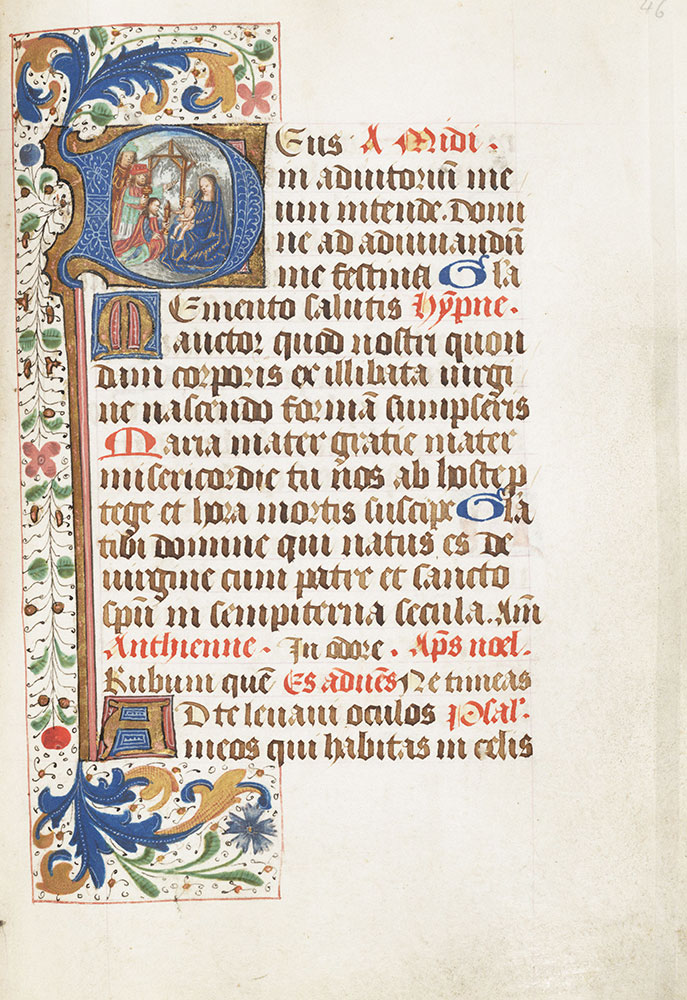 46
Deus A Midi.
in adiutoriū me
um intende. Domi
ne ad adiuuandū
me festina Gl'a
Memento salutis Hÿpne.
auctor quod nostri quon
dam corporis ex illibata uirgi
ne nascendo formā sumpseris
Maria mater gratie mater
misericordie tu nos ab hoste p
tege et hora mortis suscipe Gl'a
tibi domine qui natus es de
uirgine cum patre et sancto
spū in sempiterna secula. Am̄
Anthienne. In odore. Aps noel.
Rubum quē Es aduēs Ne timeas
AD te leuaui oculos psal'
meos qui habitas in celis